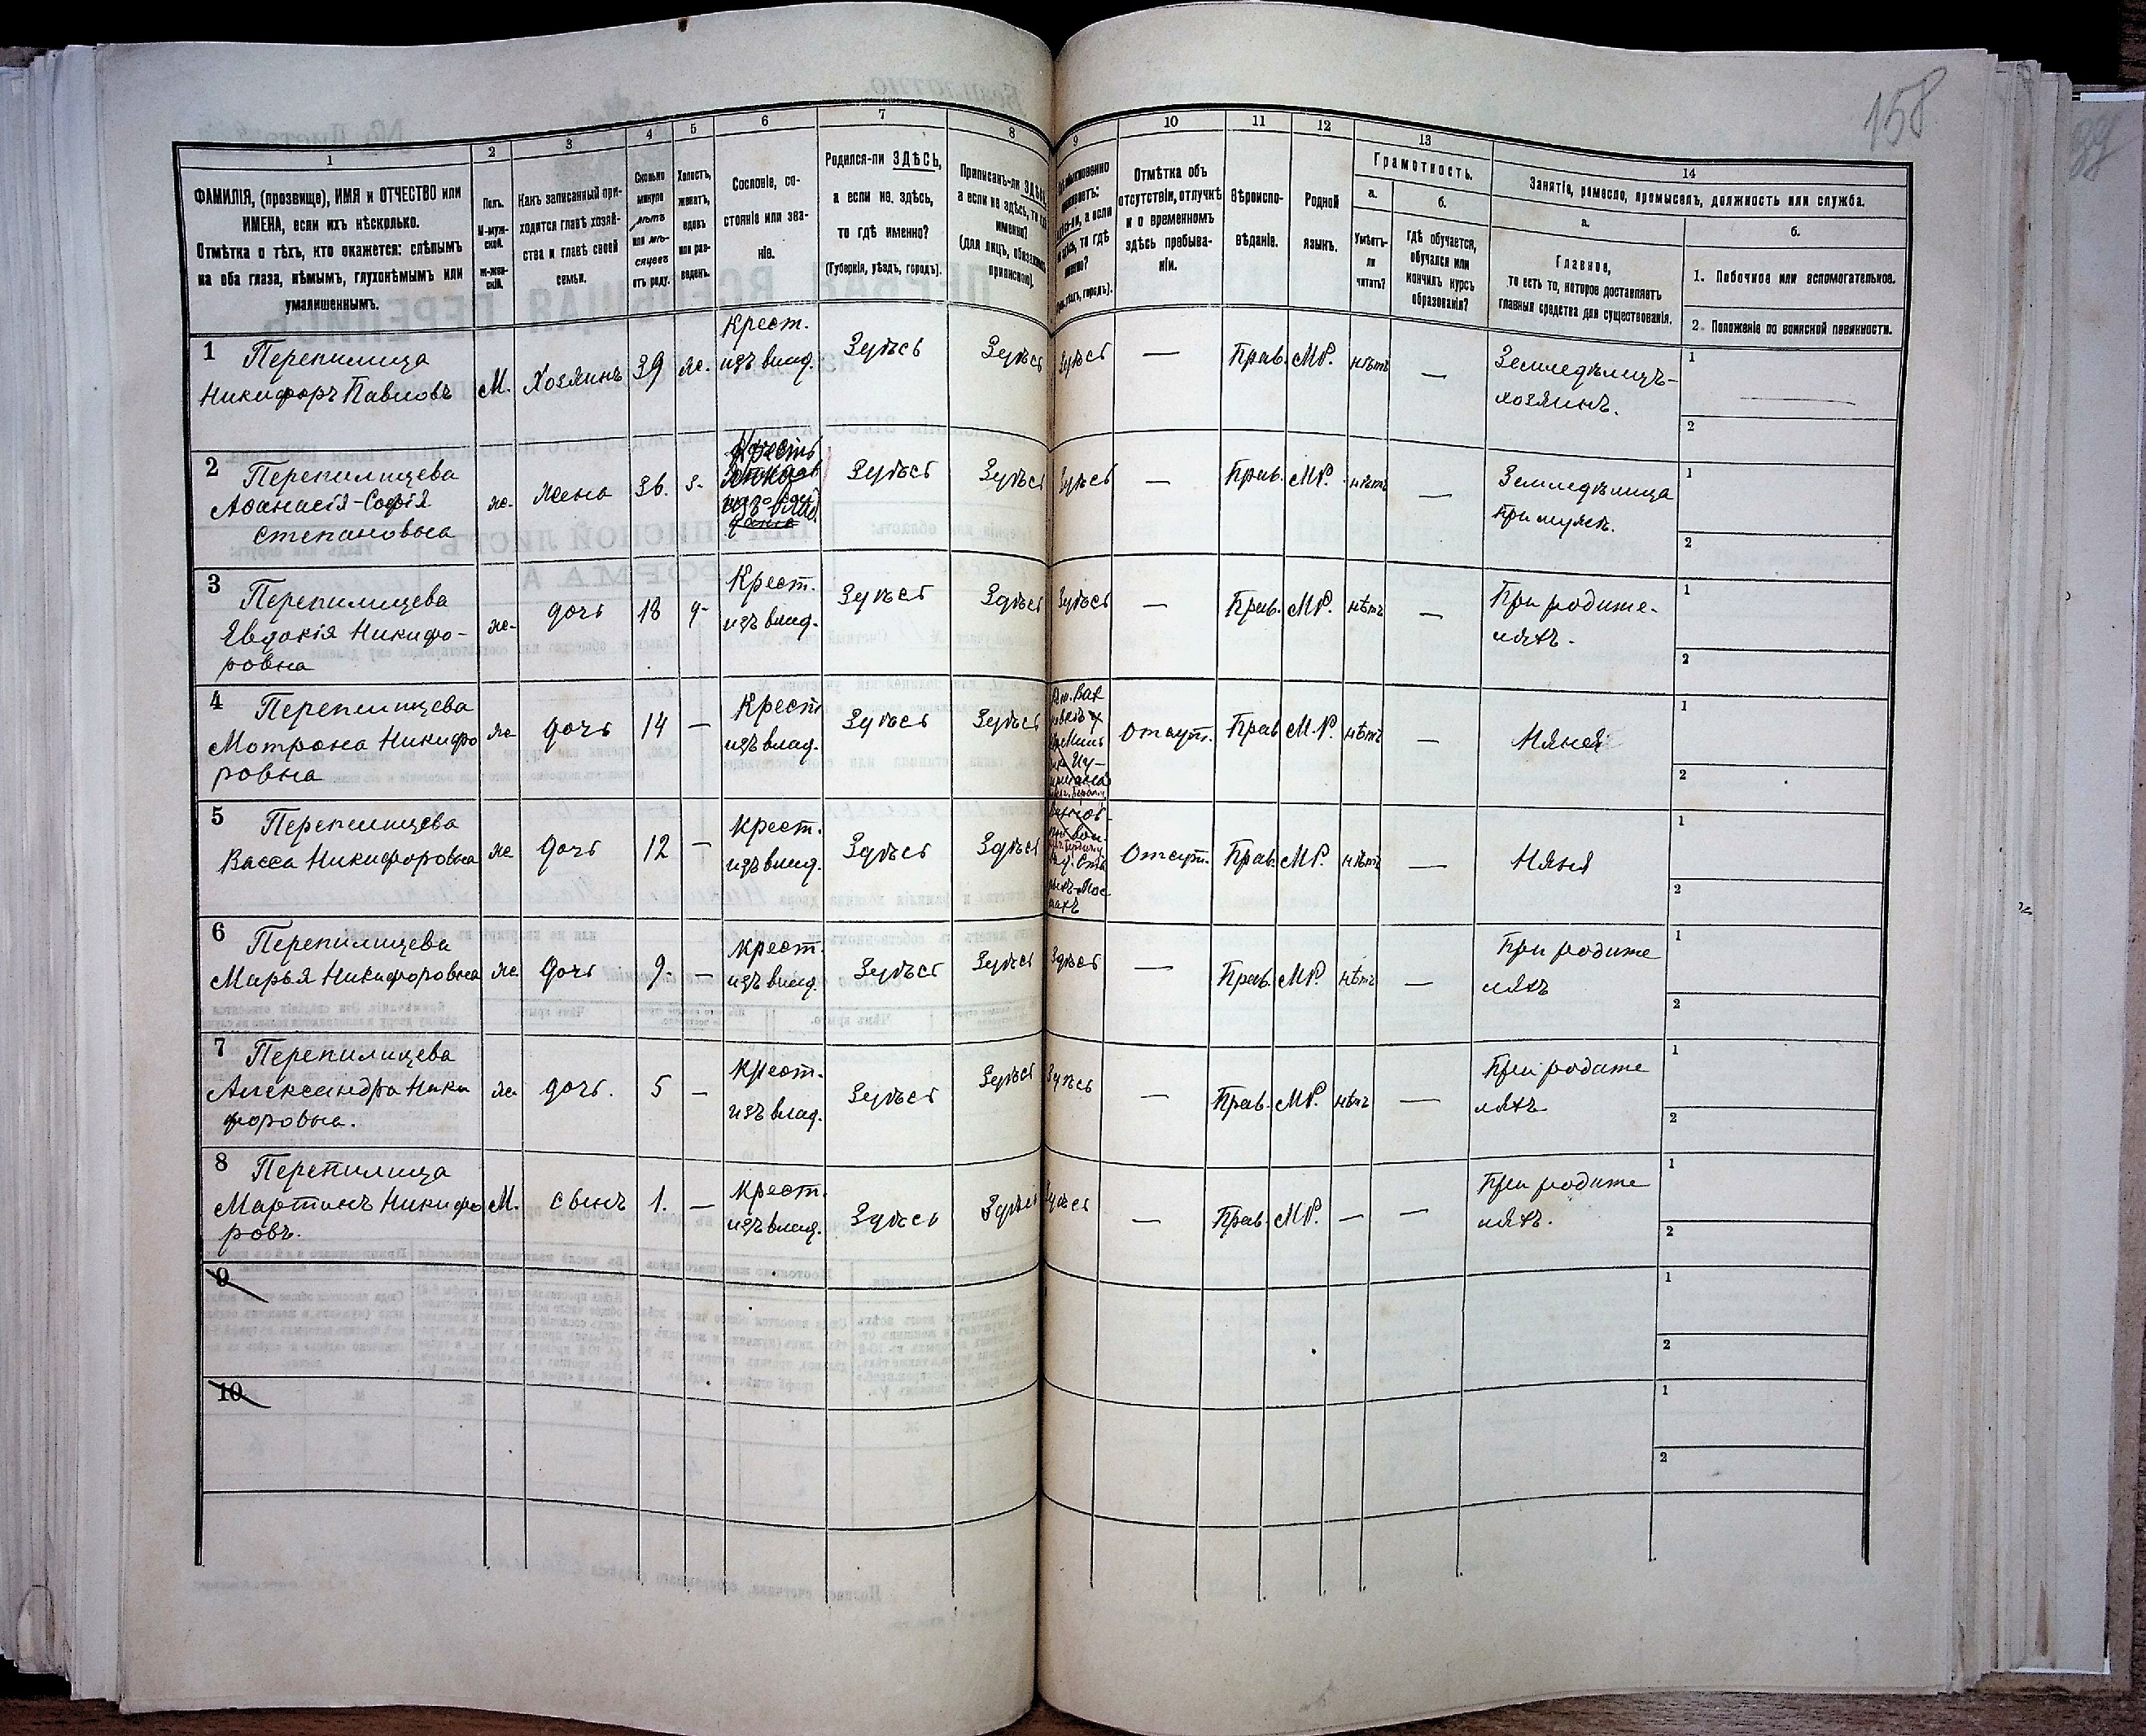 158
1
2
3
4
5
6
7
8
9
10
11
12
13
14
ФАМИЛІЯ, (прозвище), ИМЯ и ОТЧЕСТВО или
ИМЕНА, если ихъ нѣсколько.
Отмѣтка о тѣхъ, кто окажется: слѣпымъ
на оба глаза, нѣмымъ, глухонѣмымъ или
умалишеннымъ.
Полъ.
М-муж-
ской.
Ж-жен-
скій.
Какъ записанный при-
ходится главѣ хозяй-
ства и главѣ своей
семьи.
Сколько
минуло
лѣтъ
или мѣ-
сяцевъ
отъ роду.
Холостъ,
женатъ,
вдовъ
или раз-
веденъ.
Сословіе, со-
стояніе или зва-
ніе.
Родился-ли ЗДѢСЬ,
а если не здѣсь,
то гдѣ именно?
(Губернія, уѣздъ, городъ).
Приписанъ-ли ЗДѢСЬ,
а если не здѣсь, то гдѣ
именно?
(для лицъ, обязанныхъ
припискою).
Отмѣтка объ
отсутствіи, отлучкѣ
и о временномъ
здѣсь пребыва-
ніи.
Вѣроиспо-
вѣданіе.
Родной
языкъ.
Грамотность.
а.
Умѣетъ-
ли
читать?
б.
Гдѣ обучается,
обучался или
кончилъ курсъ
образованія?
Занятіе, ремесло, промыселъ, должность или служба.
а.
Главное,
то есть то, которое доставляетъ
главныя средства для существованія.
б.
1. Побочное или вспомогательное.
2. Положеніе по воинской повинности.
1 Перепилица
Никифоръ Павловъ
М. Хозяинъ 39 ж. Крест.
изъ влад. Здѣсь Здѣсь Здѣсь — Прав. МР. нѣтъ — Земледѣлецъ-
хозяинъ.
1
2
2 Перепилицева
Афанасія-Софія
Степановна
ж. жена 36. з. Здѣсь Здѣсь Здѣсь — Прав. МР. нѣтъ — Земледѣлица
при мужѣ.
1
2
3 Перепилицева
Явдокія Никифо-
ровна
ж. дочь 18 д- Крест.
изъ влад. Здѣсь Здѣсь Здѣсь — Прав. МР. нѣтъ — При родите-
ляхъ.
1
2
4 Перепилицева
Мотрона Никифо
ровна
ж дочь 14 — Крест
изъ влад. Здѣсь Здѣсь Отсут. Прав М.Р. нѣтъ — Няня
1
2
5 Перепилицева
Васса Никифоровна
ж дочь 12 — Крест.
изъ влад. Здѣсь Здѣсь Отсут. Прав. МР. нѣтъ — Няня
1
2
6 Перепилицева
Марья Никифоровна
ж дочь 9. — Крест.
изъ влад. Здѣсь Здѣсь Здѣсь — Прав. МР. нѣтъ — При родите
ляхъ
1
2
7 Перепилицева
Александра Ники
форовна.
ж. дочь. 5 — Крест.
изъ влад. Здѣсь Здѣсь Здѣсь — Прав. МР. нѣтъ — При родите
ляхъ
1
2
8 Перепилица
Мартинъ Никифо
ровъ.
М. сынъ 1. — Крест.
изъ влад. Здѣсь Здѣсь Здѣсь — Прав. МР. — — При родите
ляхъ.
1
2
9
1
2
10
1
2